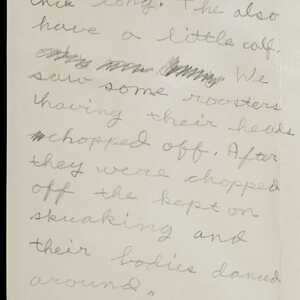 thick long. The also
have a little calf.
We
saw some roosters
having their heads
chopped off. After
they were chopped
off the kept on
skuaking and
their bodies danced
around.